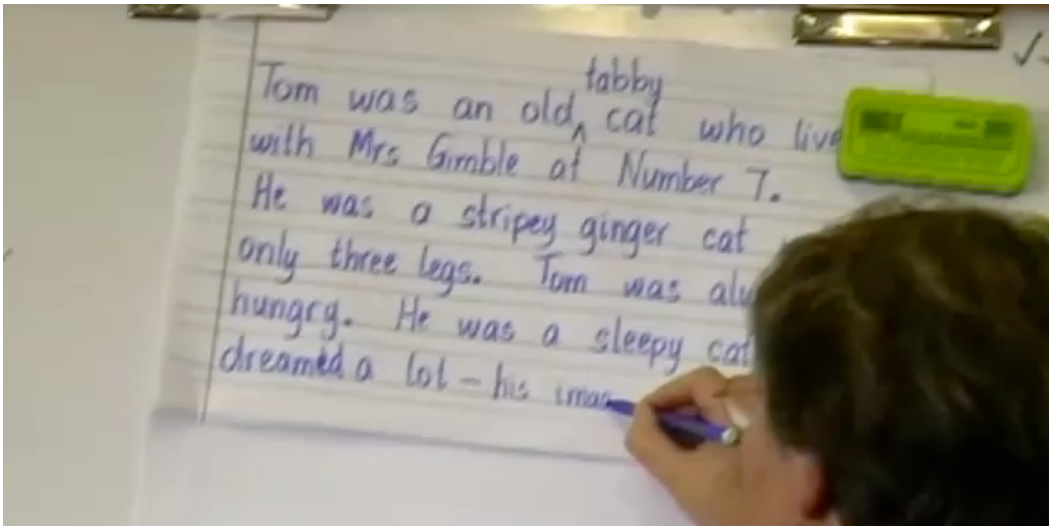 tabby
Tom was an old, ^ cat who live
with Mrs Gimble at Number 7.
He was a stripey ginger cat
only three legs. Tom was alw
hungry. He was a sleepy cat
dreamed a lot – his imag